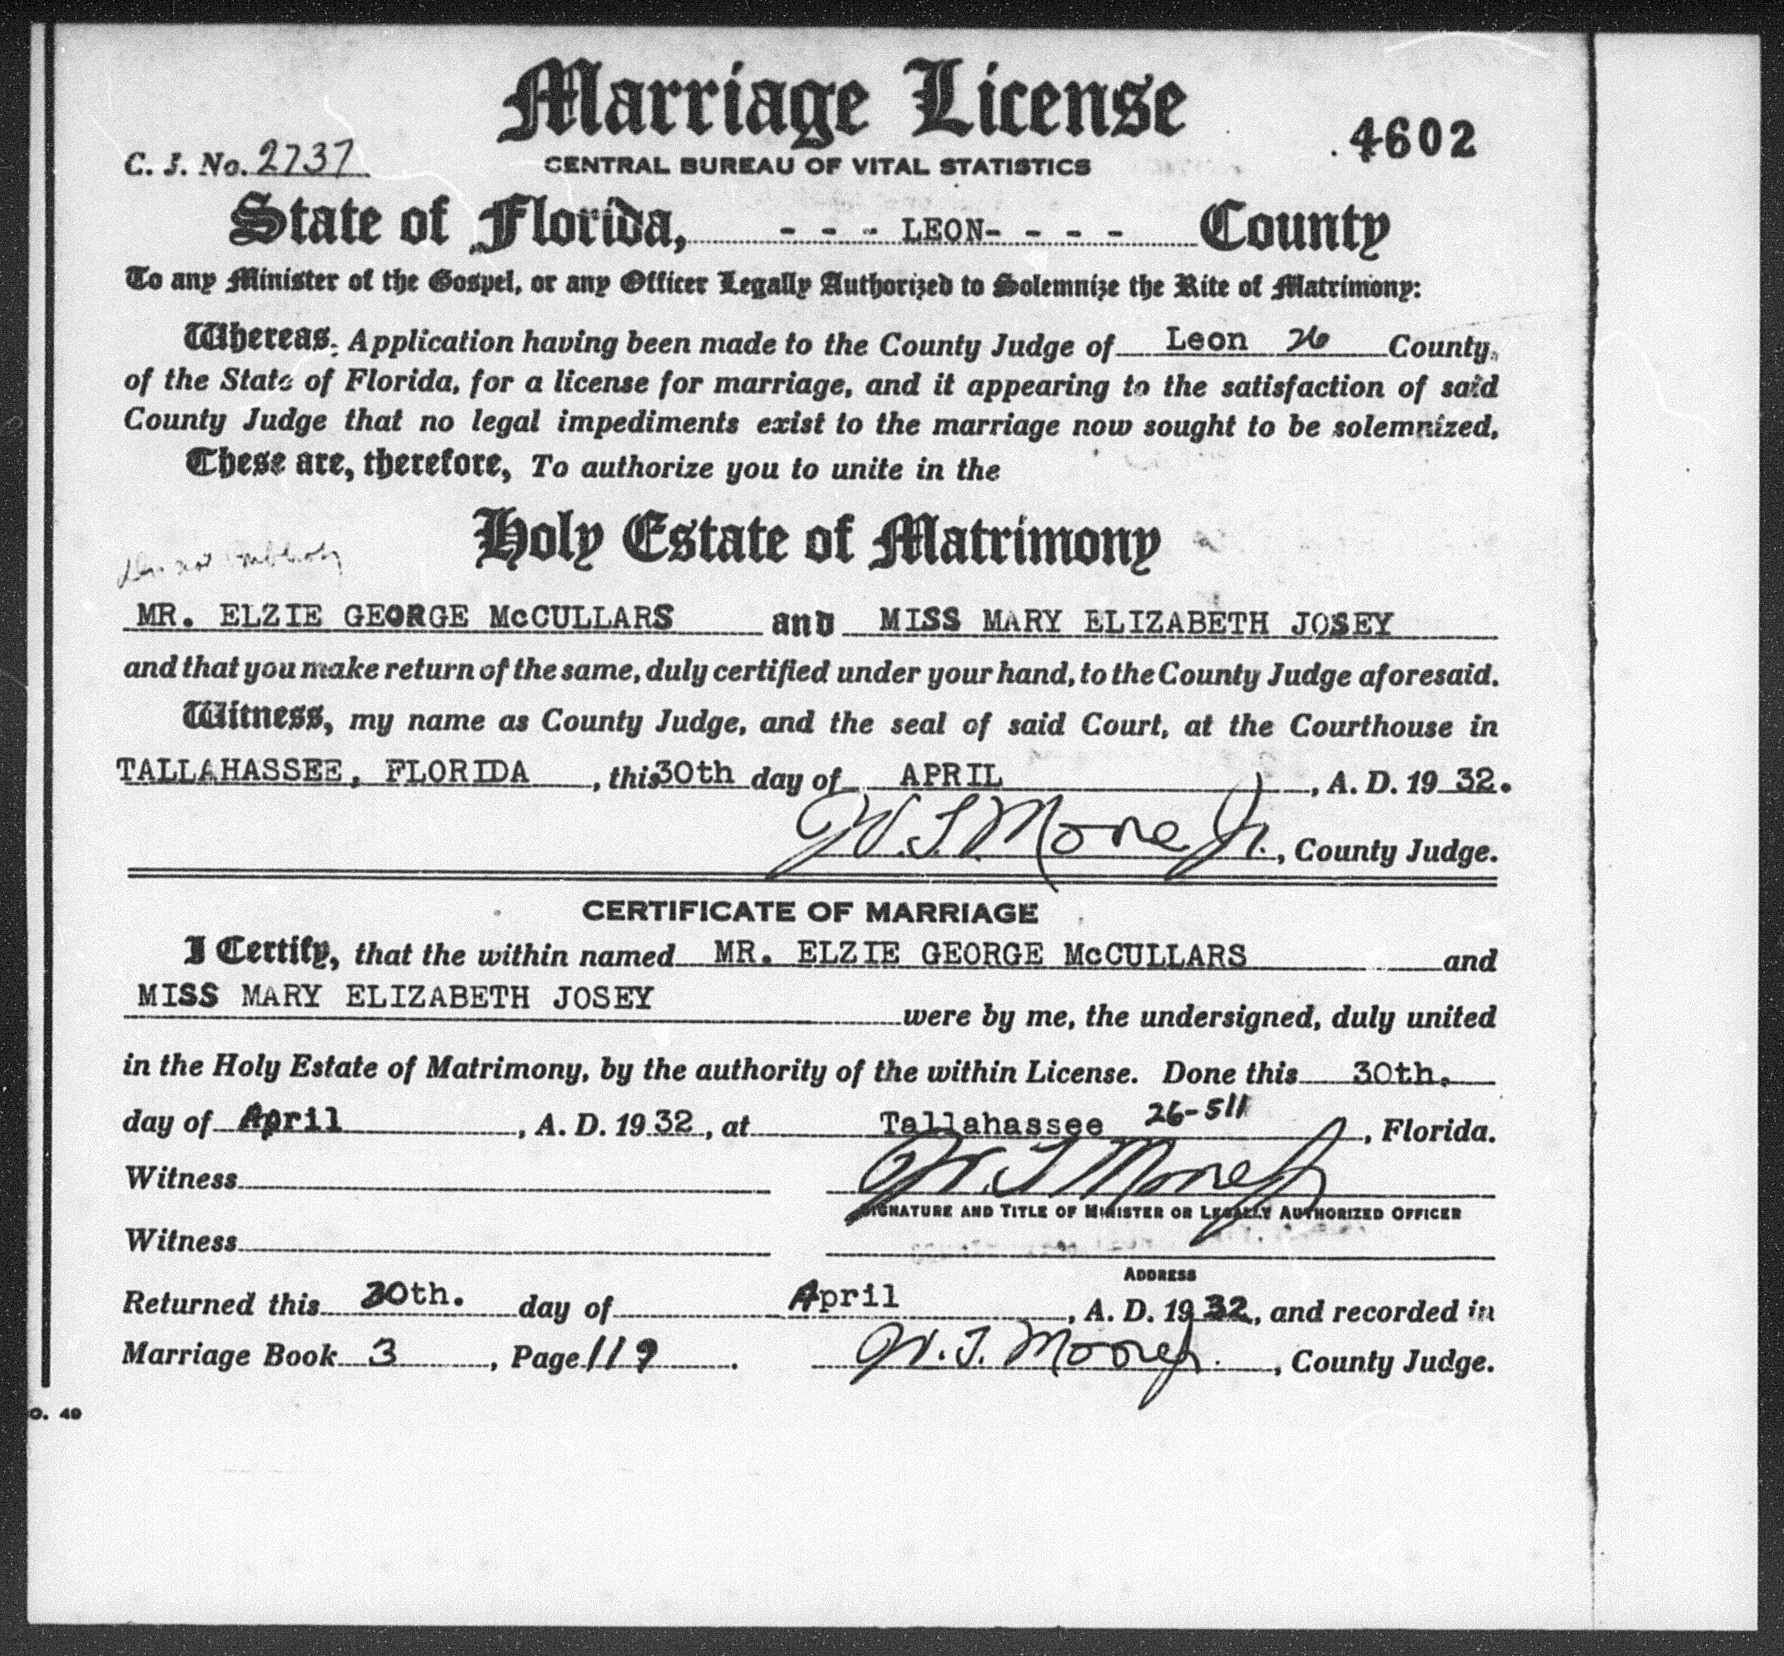 Marriage License
4602
C. J. No. 2737
CENTRAL BUREAU OF VITAL STATISTICS
State of Florida, - - - LEON- - - - County
To any Minister of the Gospel, or any Officer Legally Authorized to Solemnize the Rite of Matrimony:
Whereas: Application having been made to the County Judge of Leon 26 County,
of the State of Florida, for a license for marriage, and it appearing to the satisfaction of said
County Judge that no legal impediments exist to the marriage now sought to be solemnized,
These are, therefore, To authorize you to unite in the
Holy Estate of Matrimony
MR. ELZIE GEORGE McCULLARS and MISS MARY ELIZABETH JOSEY
and that you make return of the same, duly certified under your hand, to the County Judge aforesaid.
Witness, my name as County Judge, and the seal of said Court, at the Courthouse in
TALLAHASSEE, FLORIDA, this 30th day of APRIL, A. D. 19 32.
W. T. Moore Jr., County Judge.
CERTIFICATE OF MARRIAGE
I Certify, that the within named MR. ELZIE GEORGE McCULLARS and
MISS MARY ELIZABETH JOSEY were by me, the undersigned, duly united
in the Holy Estate of Matrimony, by the authority of the within License. Done this 30th.
day of April, A. D. 19 32, at Tallahassee 26-511, Florida.
Witness W. T. Moore Jr
SIGNATURE AND TITLE OF MINISTER OR LEGALLY AUTHORIZED OFFICER
Witness
ADDRESS
Returned this 30th. day of April, A. D. 19 32, and recorded in
Marriage Book 3, Page 119. W. T. Moore Jr., County Judge.
O. 40